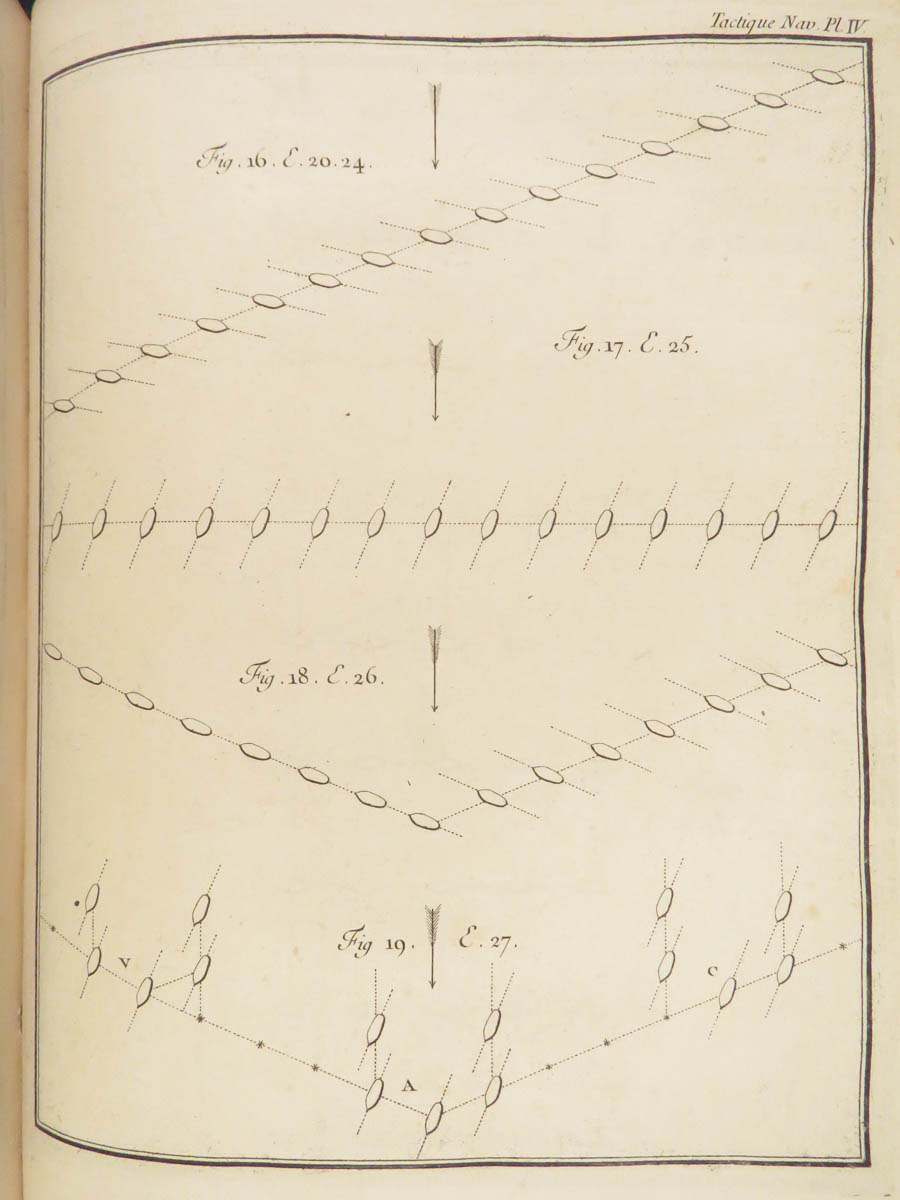 Tactique Nav. Pl. IV
Fig. 16. E. 20. 24.
Fig. 17. E. 25.
Fig. 18. E. 26.
Fig 19. E. 27.
V
C
A